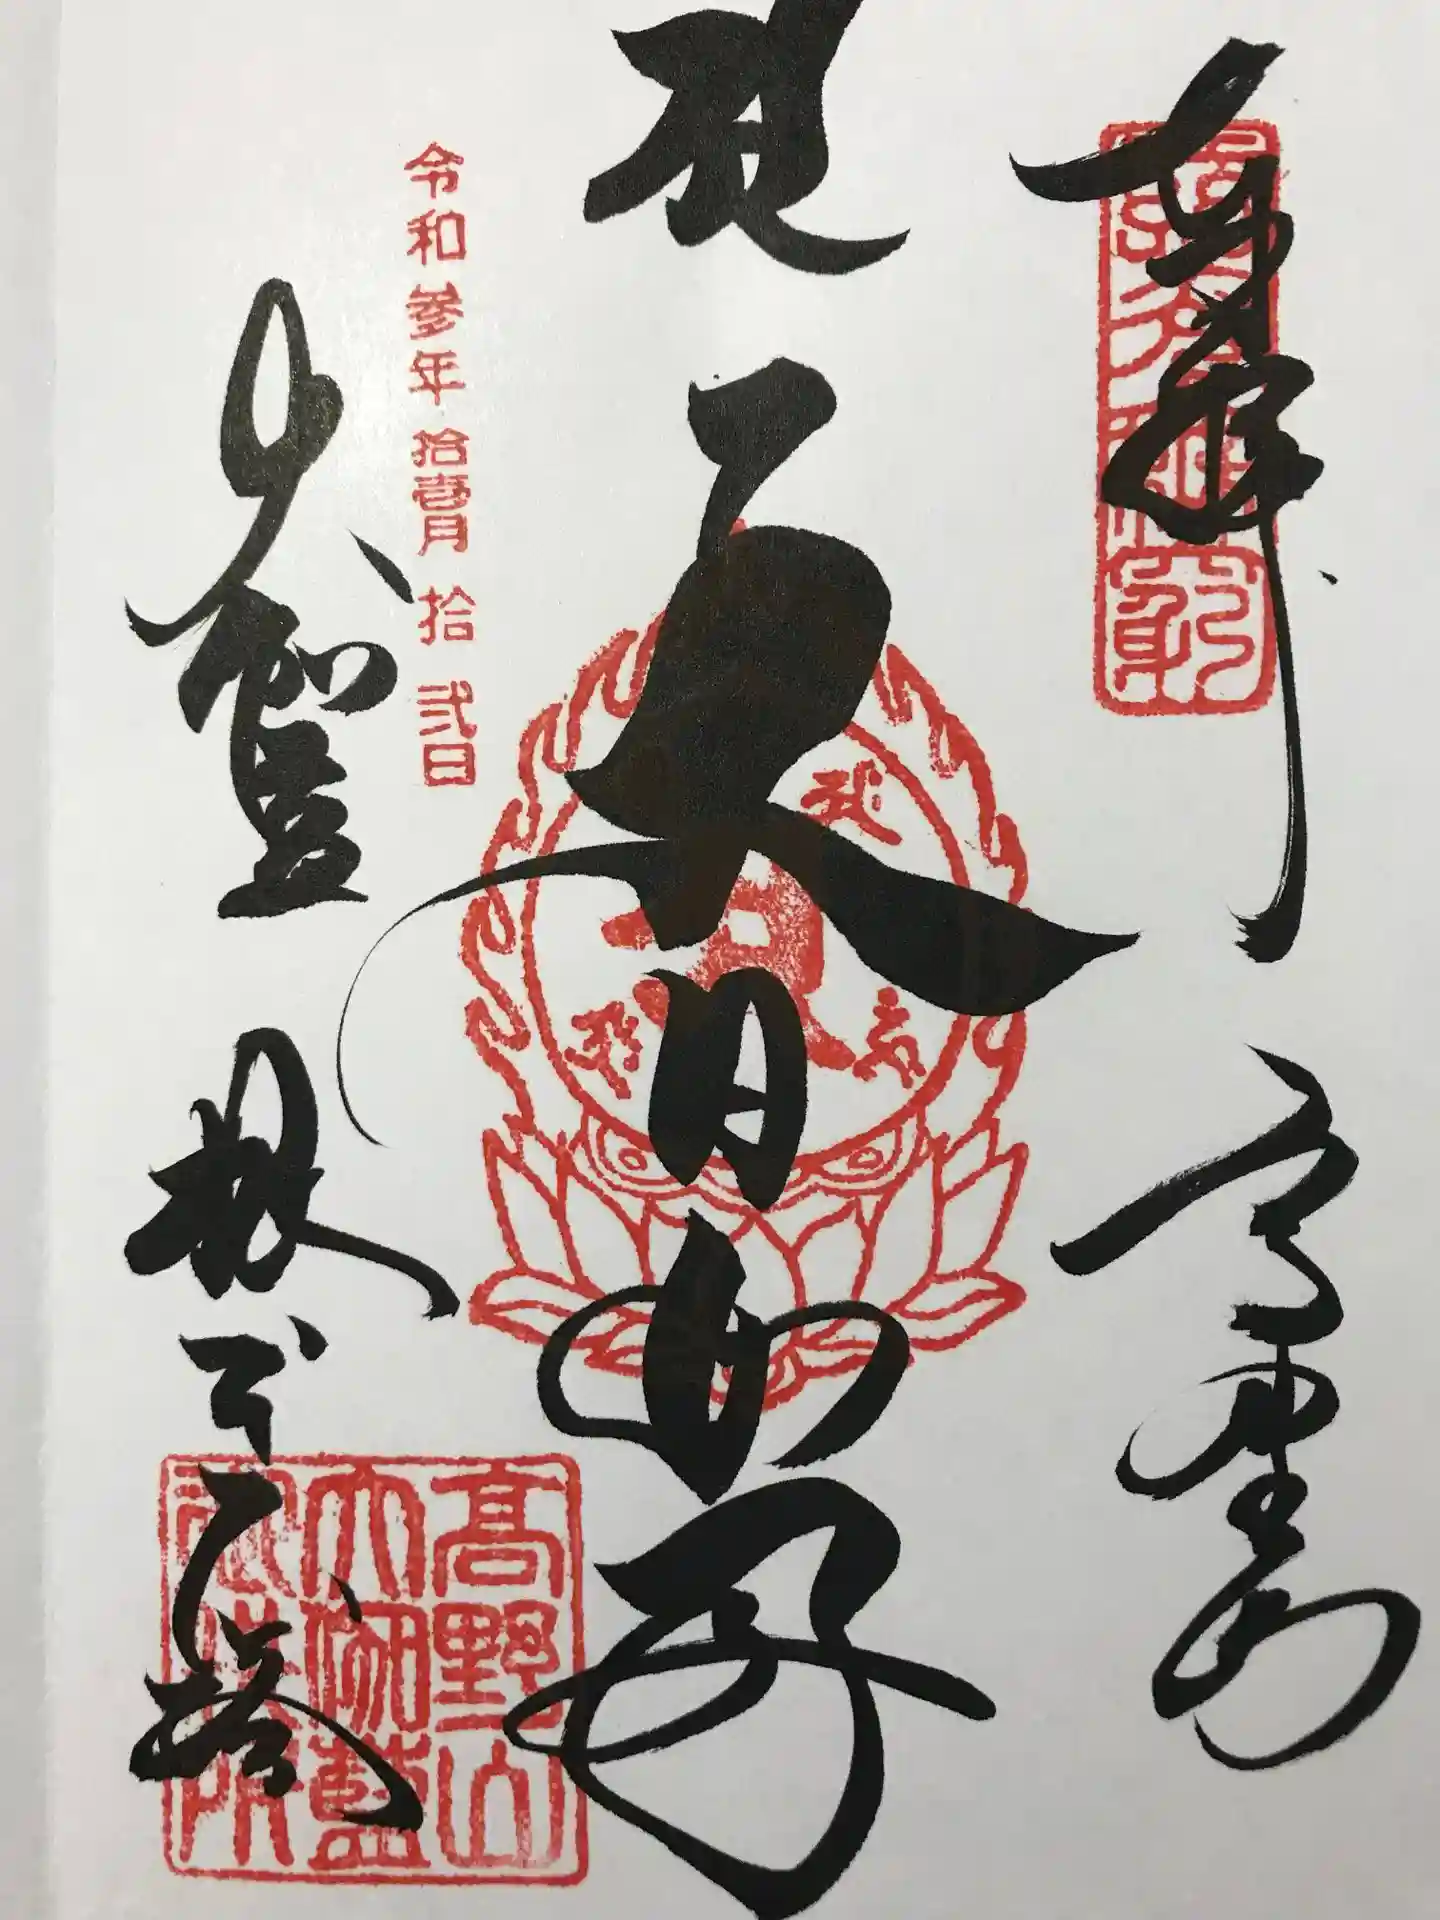 奉拝 高野山
大日如来
令和参年 拾壹月 拾弐日
大伽藍 根本大塔
高野山
大伽藍
御供所